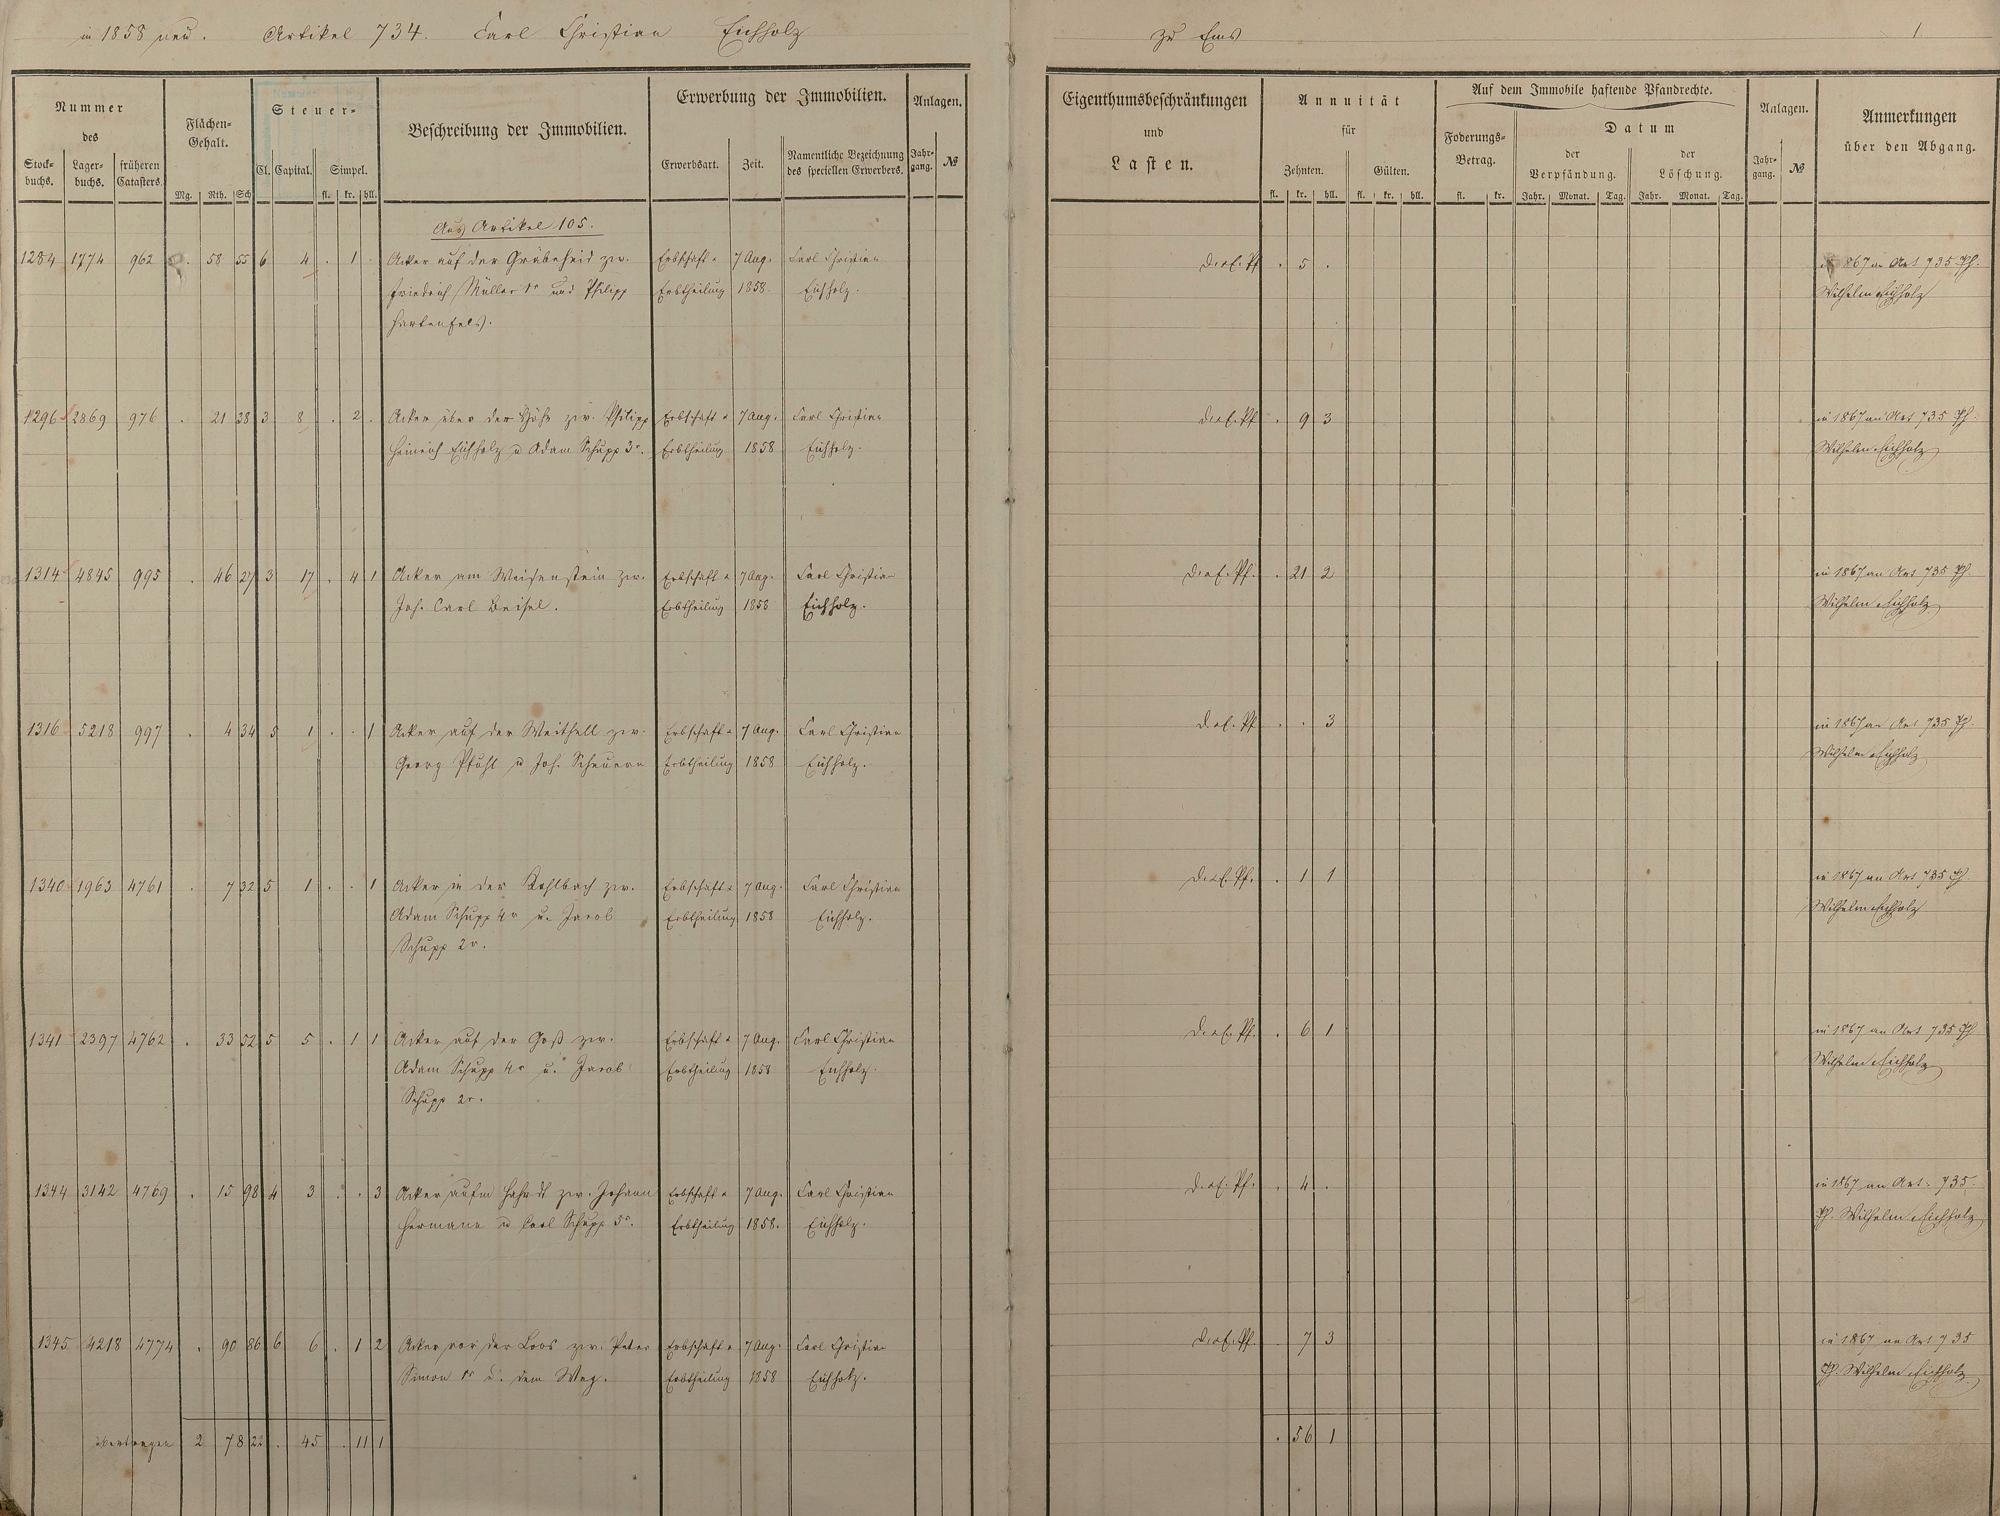 in 1858 neu. Artikel 734. Carl Christian Eichholz zu Ems 1
Nummer des
Stockbuchs. Lagerbuchs. früheren Catasters.
Flächen-Gehalt.
Mg. Rth. Sch
Steuer-
Cl. Capital. Simpel.
fl. kr. hll.
Beschreibung der Immobilien.
Erwerbung der Immobilien.
Erwerbsart. Zeit. Namentliche Bezeichnung des speciellen Erwerbers.
Anlagen.
Jahrgang. №
Eigenthumsbeschränkungen und Lasten.
Annuität für
Zehnten. Gülten.
fl. kr. hll. fl. kr. hll.
Auf dem Immobile haftende Pfandrechte.
Foderungs-Betrag.
fl. kr.
Datum
der Verpfändung. der Löschung.
Jahr. Monat. Tag. Jahr. Monat. Tag.
Anlagen.
Jahrgang. №
Anmerkungen über den Abgang.
Aus Artikel 105.
1284 1774 962 . 58 55 6 4 . 1 . Acker auf der Gräbenheid zw. Erbschaft u 7 Aug. Carl Christian . 5 . 1867 an Art 735 Ph.
Friedrich Müller 1r und Philipp Erbtheilung 1858. Eichholz. Wilhelm Eichholz
Hartenfels.
1296 2869 976 . 21 38 3 8 . 2 . Acker über der Höhe zw. Philipp Erbschaft u 7 Aug. Carl Christian . 9 3 in 1867 an Art 735 Ph.
Heinrich Eichholz u Adam Schupp 3r. Erbtheilung 1858 Eichholz. Wilhelm Eichholz
1314 4845 995 . 46 27 3 17 . 4 1 Acker am Weisenstein zw. Erbschaft u 7 Aug. Carl Christian . 21 2 in 1867 an Art 735 Ph.
Joh. Carl Beisel. Erbtheilung 1858 Eichholz. Wilhelm Eichholz
1316 5218 997 . 4 34 5 1 . . 1 Acker auf der Weithell zw. Erbschaft u 7 Aug. Carl Christian . . 3 in 1867 an Art 735 Ph.
Georg Pfuhl u Joh. Scheuern Erbtheilung 1858 Eichholz. Wilhelm Eichholz
1340 1963 4761 . 7 32 5 1 . . 1 Acker in der Kohlbach zw. Erbschaft u 7 Aug. Carl Christian . 1 1 in 1867 an Art 735 Ph
Adam Schupp 4r u. Jacob Erbtheilung 1858 Eichholz. Wilhelm Eichholz
Schupp 2r.
1341 2397 4762 . 33 52 5 5 . 1 1 Acker auf der Goß zw. Erbschaft u 7 Aug. Carl Christian . 6 1 in 1867 an Art 735 Ph
Adam Schupp 4r u. Jacob Erbtheilung 1858 Eichholz. Wilhelm Eichholz
Schupp 2r.
1344 3142 4769 . 15 98 4 3 . . 3 Acker aufm Hahndt zw. Johann Erbschaft u 7 Aug. Carl Christian . 4 . in 1867 an Art. 735.
Hermann u Carl Schupp 5r. Erbtheilung 1858. Eichholz. Ph. Wilhelm Eichholz
1345 4218 4774 . 90 86 6 6 . 1 2 Acker vor der Loos zw. Peter Erbschaft u 7 Aug. Carl Christian . 7 3 in 1867 an Art 735
Simon 1r u. dem Weg. Erbtheilung 1858 Eichholz. Ph. Wilhelm Eichholz
übertragen 2 78 22 . 45 . 11 1 . 56 1